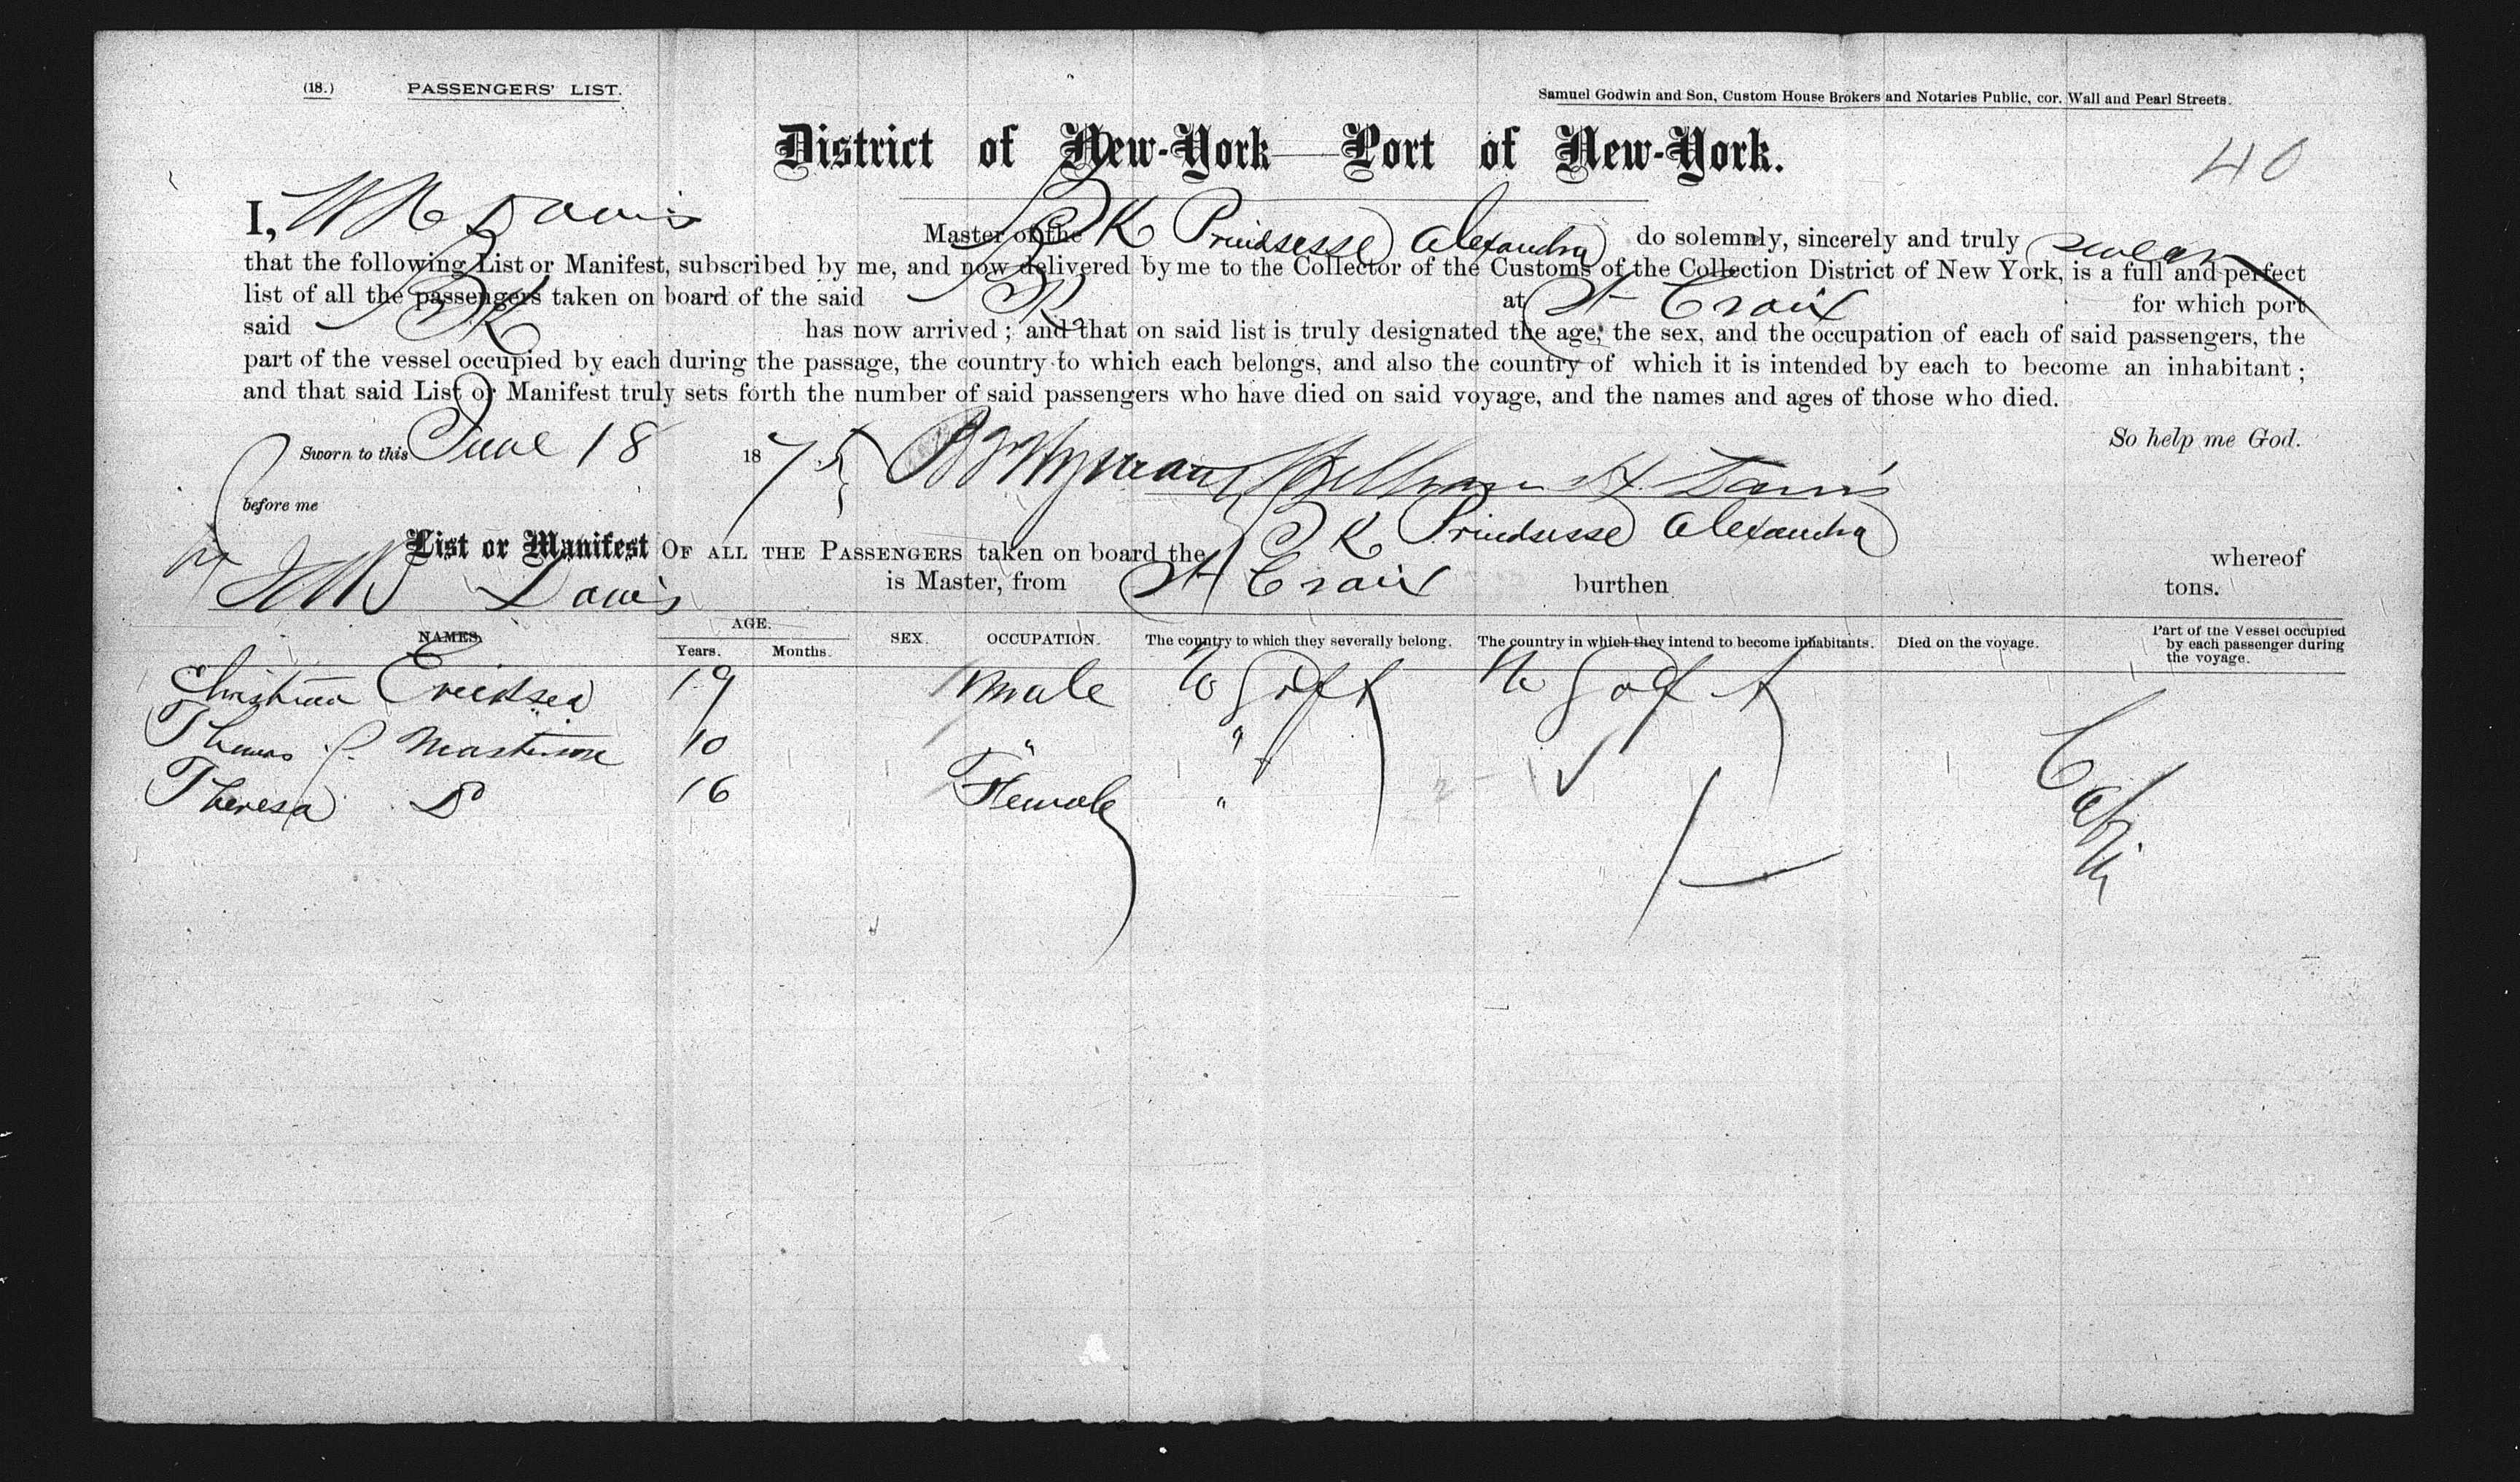 (18.) PASSENGERS' LIST. Samuel Godwin and Son, Custom House Brokers and Notaries Public, cor. Wall and Pearl Streets.
District of New-York—Port of New-York. 40
I, W H Davis Master of the BK Prindsesse Alexandra do solemnly, sincerely and truly swear
that the following List or Manifest, subscribed by me, and now delivered by me to the Collector of the Customs of the Collection District of New York, is a full and perfect
list of all the passengers taken on board of the said BK at St Croix for which port
said BK has now arrived; and that on said list is truly designated the age, the sex, and the occupation of each of said passengers, the
part of the vessel occupied by each during the passage, the country to which each belongs, and also the country of which it is intended by each to become an inhabitant;
and that said List or Manifest truly sets forth the number of said passengers who have died on said voyage, and the names and ages of those who died.
So help me God.
Sworn to this June 18 1875 } William H. Davis
before me
List or Manifest OF ALL THE PASSENGERS taken on board the BK Prindsesse Alexandra whereof
Davis is Master, from St Croix burthen tons.
NAMES. AGE. Years. Months. SEX. OCCUPATION. The country to which they severally belong. The country in which they intend to become inhabitants. Died on the voyage. Part of the Vessel occupied by each passenger during the voyage.
Christian 19 Male
Thomas 10 " "
Theresa Do 16 Female "
Cabin